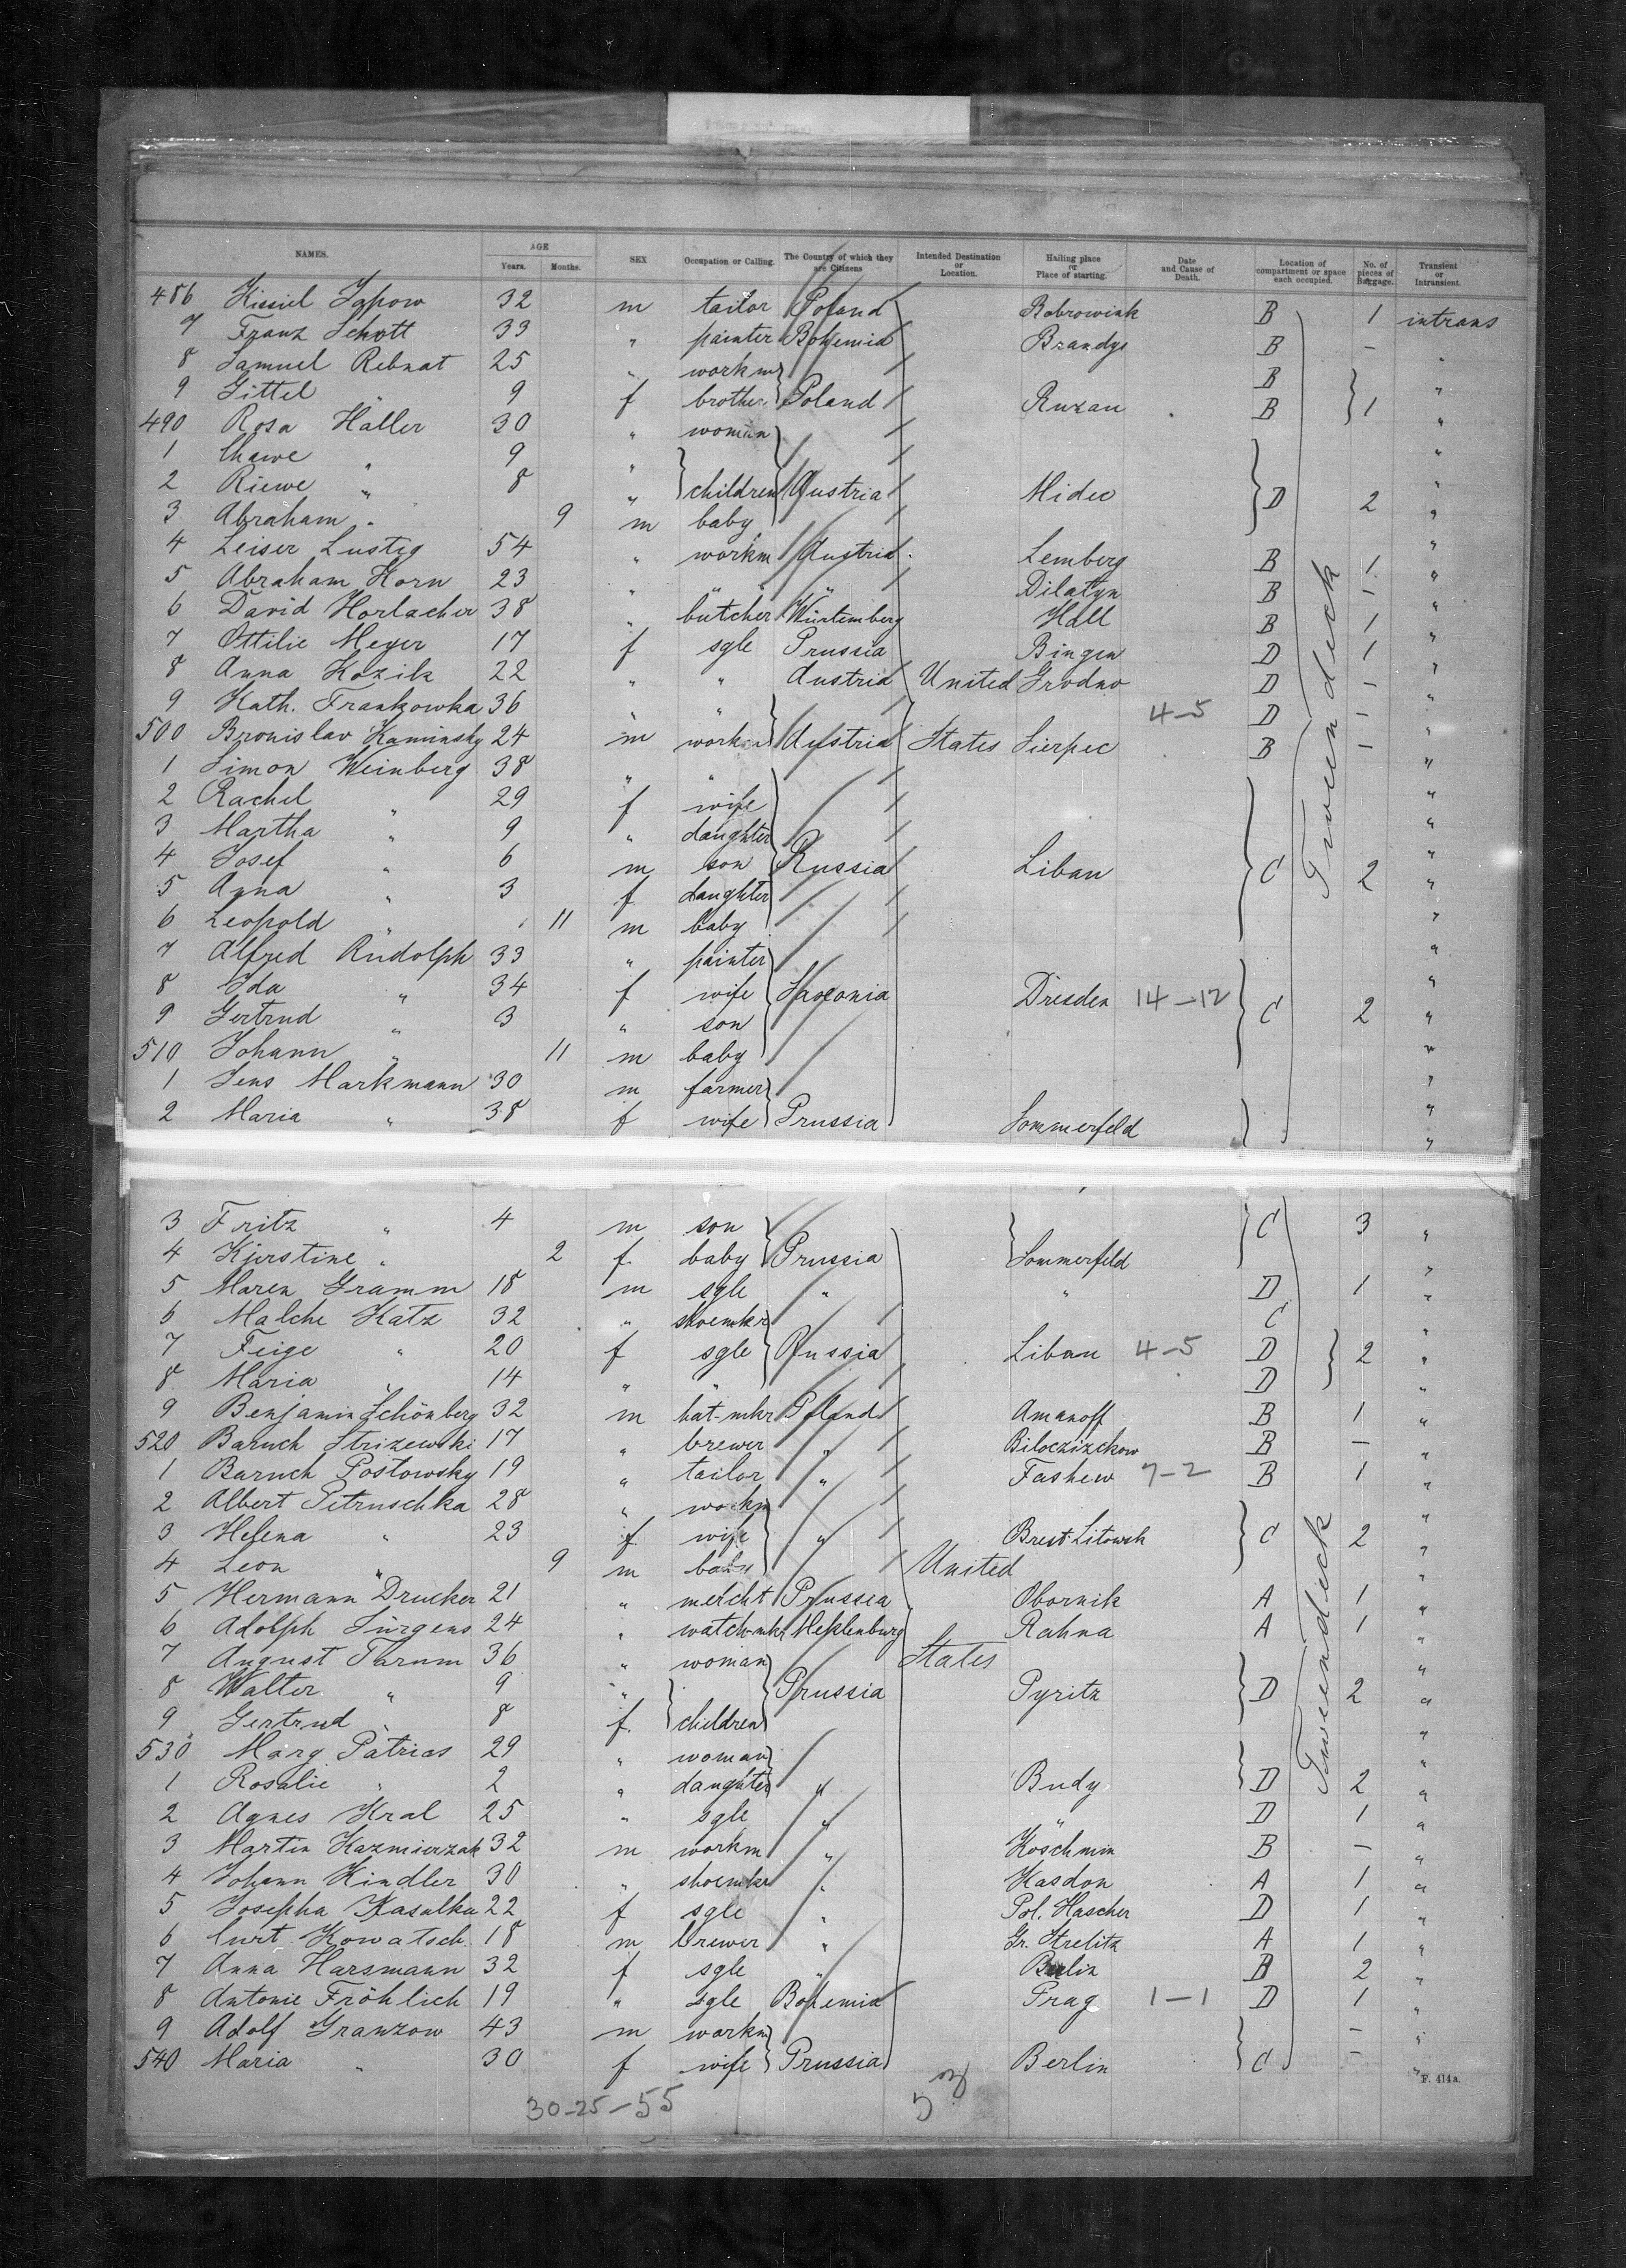 NAMES. AGE Years. Months. SEX Occupation or Calling. The Country of which they are Citizens Intended Destination or Location. Hailing place or Place of starting. Date and Cause of Death. Location of compartment or space each occupied. No. of pieces of Baggage. Transient or Intransient.
486 32 m tailor Poland B 1 intrans
7 Franz Schott 33 " painter Bohemia Brandys B - "
8 Samuel Rebnat 25 " workm B "
9 Gittel " 9 f brother Poland Ruzan B 1 "
490 Rosa Haller 30 " woman "
1 Chawe " 9 " "
2 Riewe " 8 " children Austria D 2 "
3 Abraham " 9 m baby "
4 Leiser Lustig 54 " workm Austria Lemberg B 1 "
5 Abraham Horn 23 " " " Dilatyn B - "
6 David Horlacher 38 " butcher Würtemberg Hall B 1 "
7 Ottilie Meyer 17 f sgle Prussia Bingen D 1 "
8 Anna Kozik 22 " " Austria United Grodno D - "
9 Kath. Frankowka 36 " " 4-5 D - "
500 Bronislav Kaminsky 24 m workm Austria States Sierpec B - "
1 Simon Weinberg 38 " " "
2 Rachel " 29 f wife "
3 Martha " 9 " daughter "
4 Josef " 6 m son Russia Libau C 2 "
5 Anna " 3 f daughter "
6 Leopold " 11 m baby "
7 Alfred Rudolph 33 " painter "
8 Ida " 34 f wife Saxonia Dresden 14-12 C 2 "
9 Gertrud " 3 " son "
510 Johann " 11 m baby "
1 Jens Markmann 30 m farmer "
2 Maria " 38 f wife Prussia Sommerfeld "
Tweendeck
3 Fritz " 4 m son C 3 "
4 Kjerstine " 2 f baby Prussia Sommerfeld "
5 Maren Gramm 18 m sgle " " D 1 "
6 Malche Katz 32 " shoemkr C "
7 Feige " 20 f sgle Russia Libau 4-5 D 2 "
8 Maria " 14 " " D "
9 Benjamin Schönberg 32 m hat-mkr Poland Amanoff B 1 "
520 Baruch Strizewski 17 " brewer " B - "
1 Baruch Postowsky 19 " tailor " Fashew 7-2 B 1 "
2 Albert Petruschka 28 " workm "
3 Helena " 23 f wife " Brest Litowsk C 2 "
4 Leon " 9 m baby United "
5 Hermann Drucker 21 " mercht Prussia Obornik A 1 "
6 Adolph Jürgens 24 " watch-mkr Meklenburg Rahna A 1 "
7 August Tarum 36 " woman States "
8 Walter " 9 " Prussia Pyritz D 2 "
9 Gertrud " 8 f children "
530 Marg Patrias 29 " woman "
1 Rosalie " 2 " daughter " Budy D 2 "
2 Agnes Kral 25 " sgle " " D 1 "
3 Martin Kazmierzak 32 m workm " Koschmin B - "
4 Johann Hindler 30 " shoemkr " Kasdon A 1 "
5 Josepha Kasalka 22 f sgle " Pol. Hascher D 1 "
6 Curt Kowatsch 18 m brewer " Gr. Strelitz A 1 "
7 Anna Harsmann 32 f sgle " Berlin D 2 "
8 Antonie Fröhlich 19 " sgle Bohemia Prag 1-1 D 1 "
9 Adolf Granzow 43 m workm - "
540 Maria " 30 f wife Prussia Berlin C - "
Tweendeck
F. 414a.
30-25-55